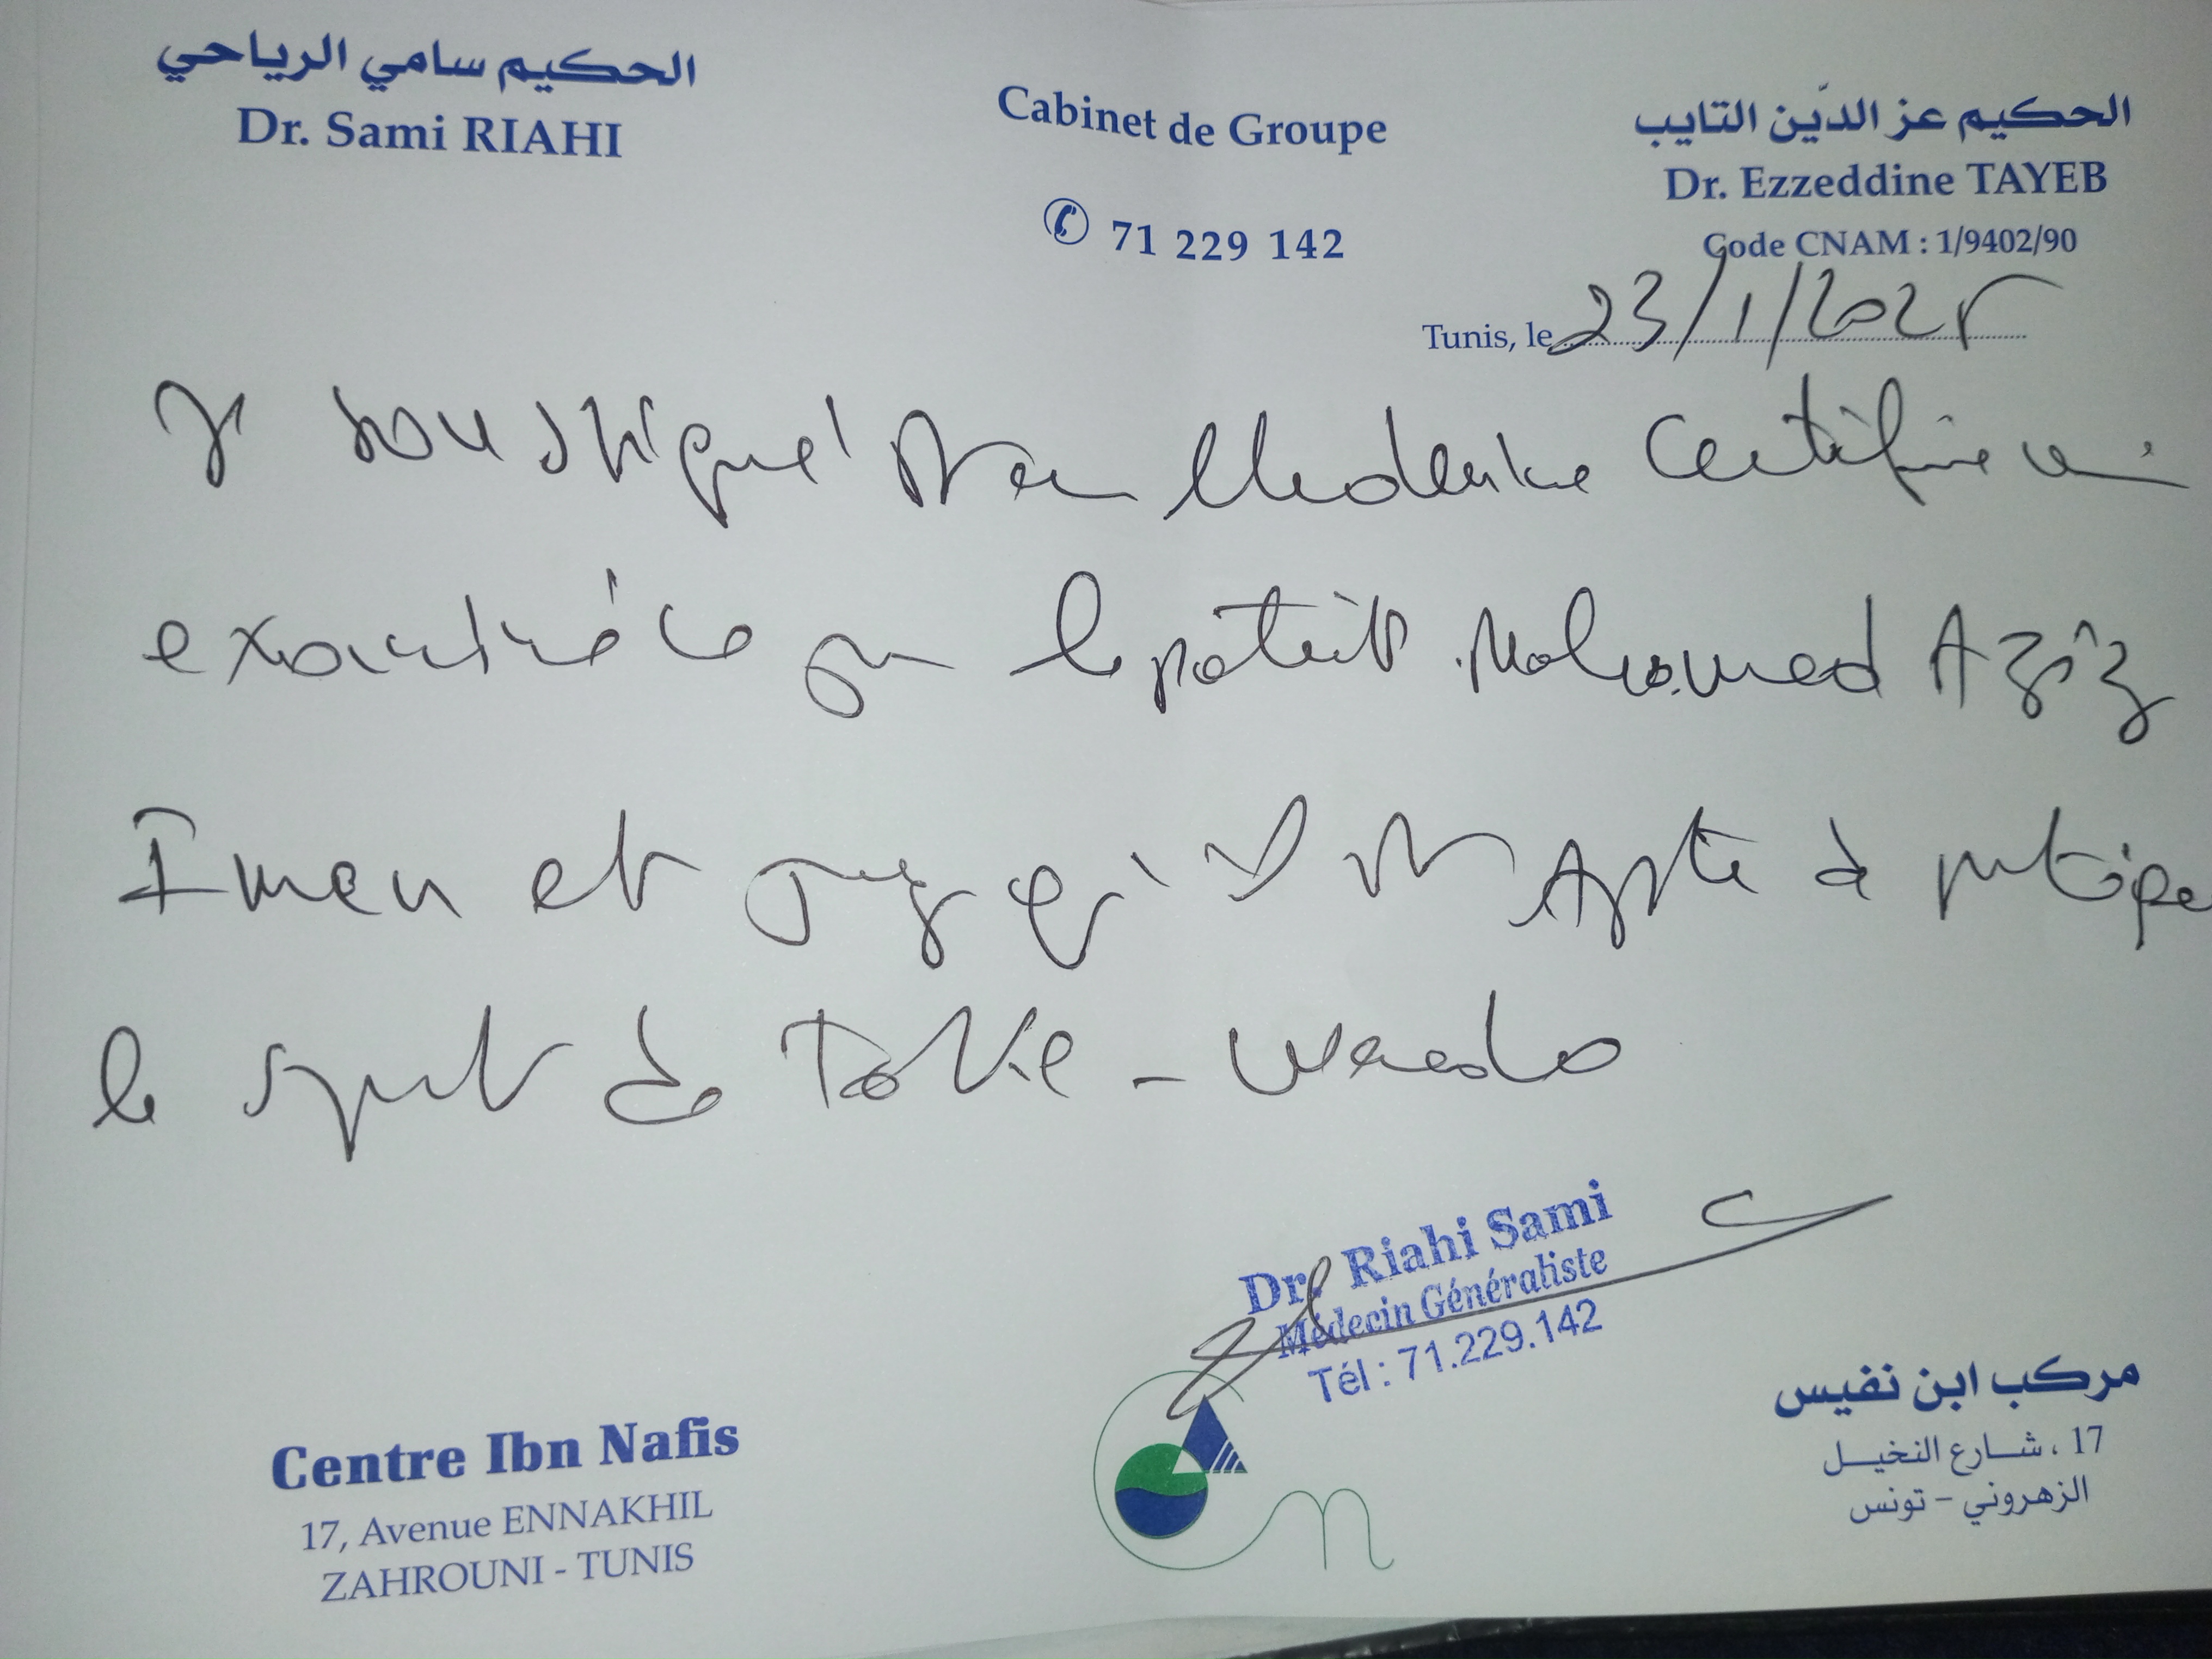 الحكيم سامي الرياحي
Dr. Sami RIAHI
Cabinet de Groupe
✆ 71 229 142
الحكيم عز الدّين التايب
Dr. Ezzeddine TAYEB
Code CNAM : 1/9402/90
Tunis, le 23/1/2025
Je soussigné Certifie
examiné ce le patient Mohamed Aziz
Imen et qu'il est Apte à
le sport de
Dr. Riahi Sami
Médecin Généraliste
Tél : 71.229.142
Centre Ibn Nafis
17, Avenue ENNAKHIL
ZAHROUNI - TUNIS
مركب ابن نفيس
17 ، شارع النخيل
الزهروني - تونس